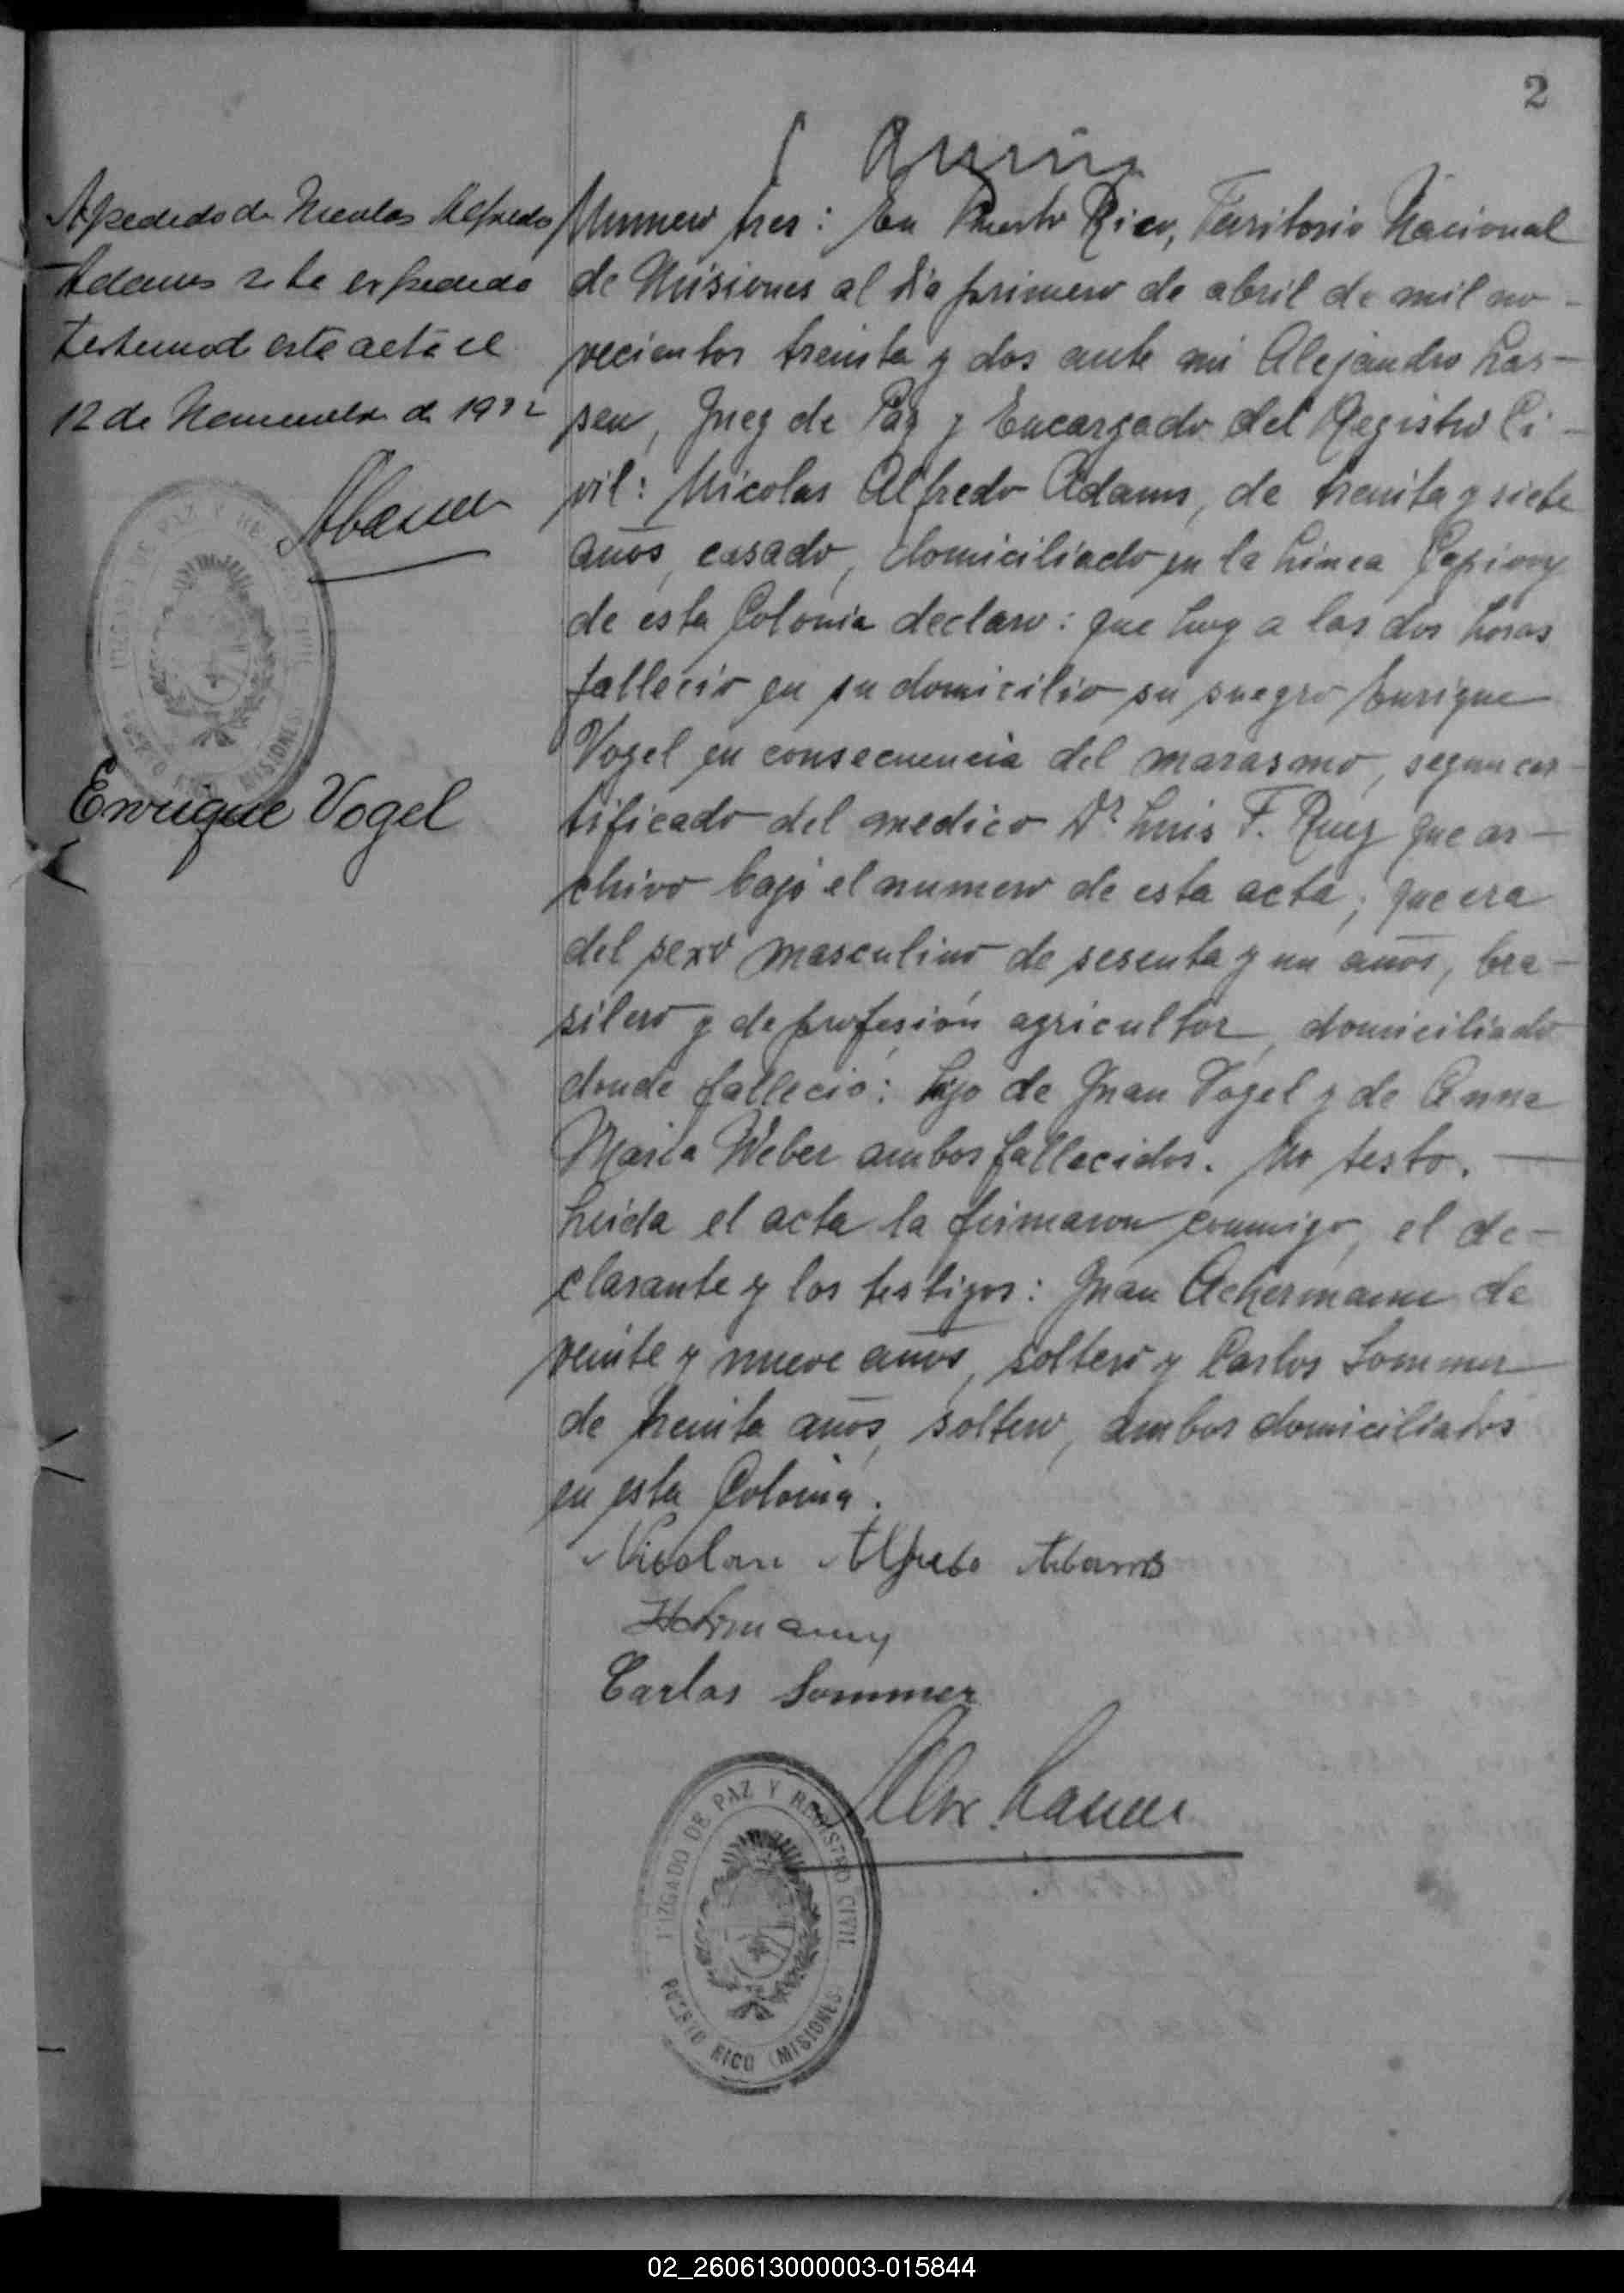 2
Apedido de Nicolas Alfredo
Adams se ha expedido
testimo de este acta el
12 de Noviembre de 1932
JUZGADO DE PAZ Y REGISTRO CIVIL
PUERTO RICO (MISIONES)
Enrique Vogel
Numero tres: En Puerto Rico, Territorio Nacional
de Misiones al dia primero de abril de mil no-
vecientos treinta y dos ante mi Alejandro Las-
sen, Juez de Paz y Encargado del Registro Ci-
vil: Nicolas Alfredo Adams, de treinta y siete
años, casado, domiciliado en la Linea Capiovy
de esta Colonia declaro: que hoy a las dos horas
fallecio en su domicilio su suegro Enrique
Vogel en consecuencia del marasmo, segun cer-
tificado del medico Dr Luis F. Ruez que ar-
chivo bajo el numero de esta acta; que era
del sexo masculino de sesenta y un años, bra-
silero y de profesión agricultor, domiciliado
donde falleció: hijo de Juan Vogel y de Anna
Maria Weber ambos fallecidos. No testo.
Leida el acta la firmaron conmigo, el de-
clarante y los testigos: Juan Ackermann de
veinte y nueve años, soltero y Carlos Sommer
de treinta años, soltero, ambos domiciliados
en esta Colonia.
Nicolau Alfredo Adams
Carlos Sommer
Alex Lassen
JUZGADO DE PAZ Y REGISTRO CIVIL
PUERTO RICO (MISIONES)
02_260613000003-015844